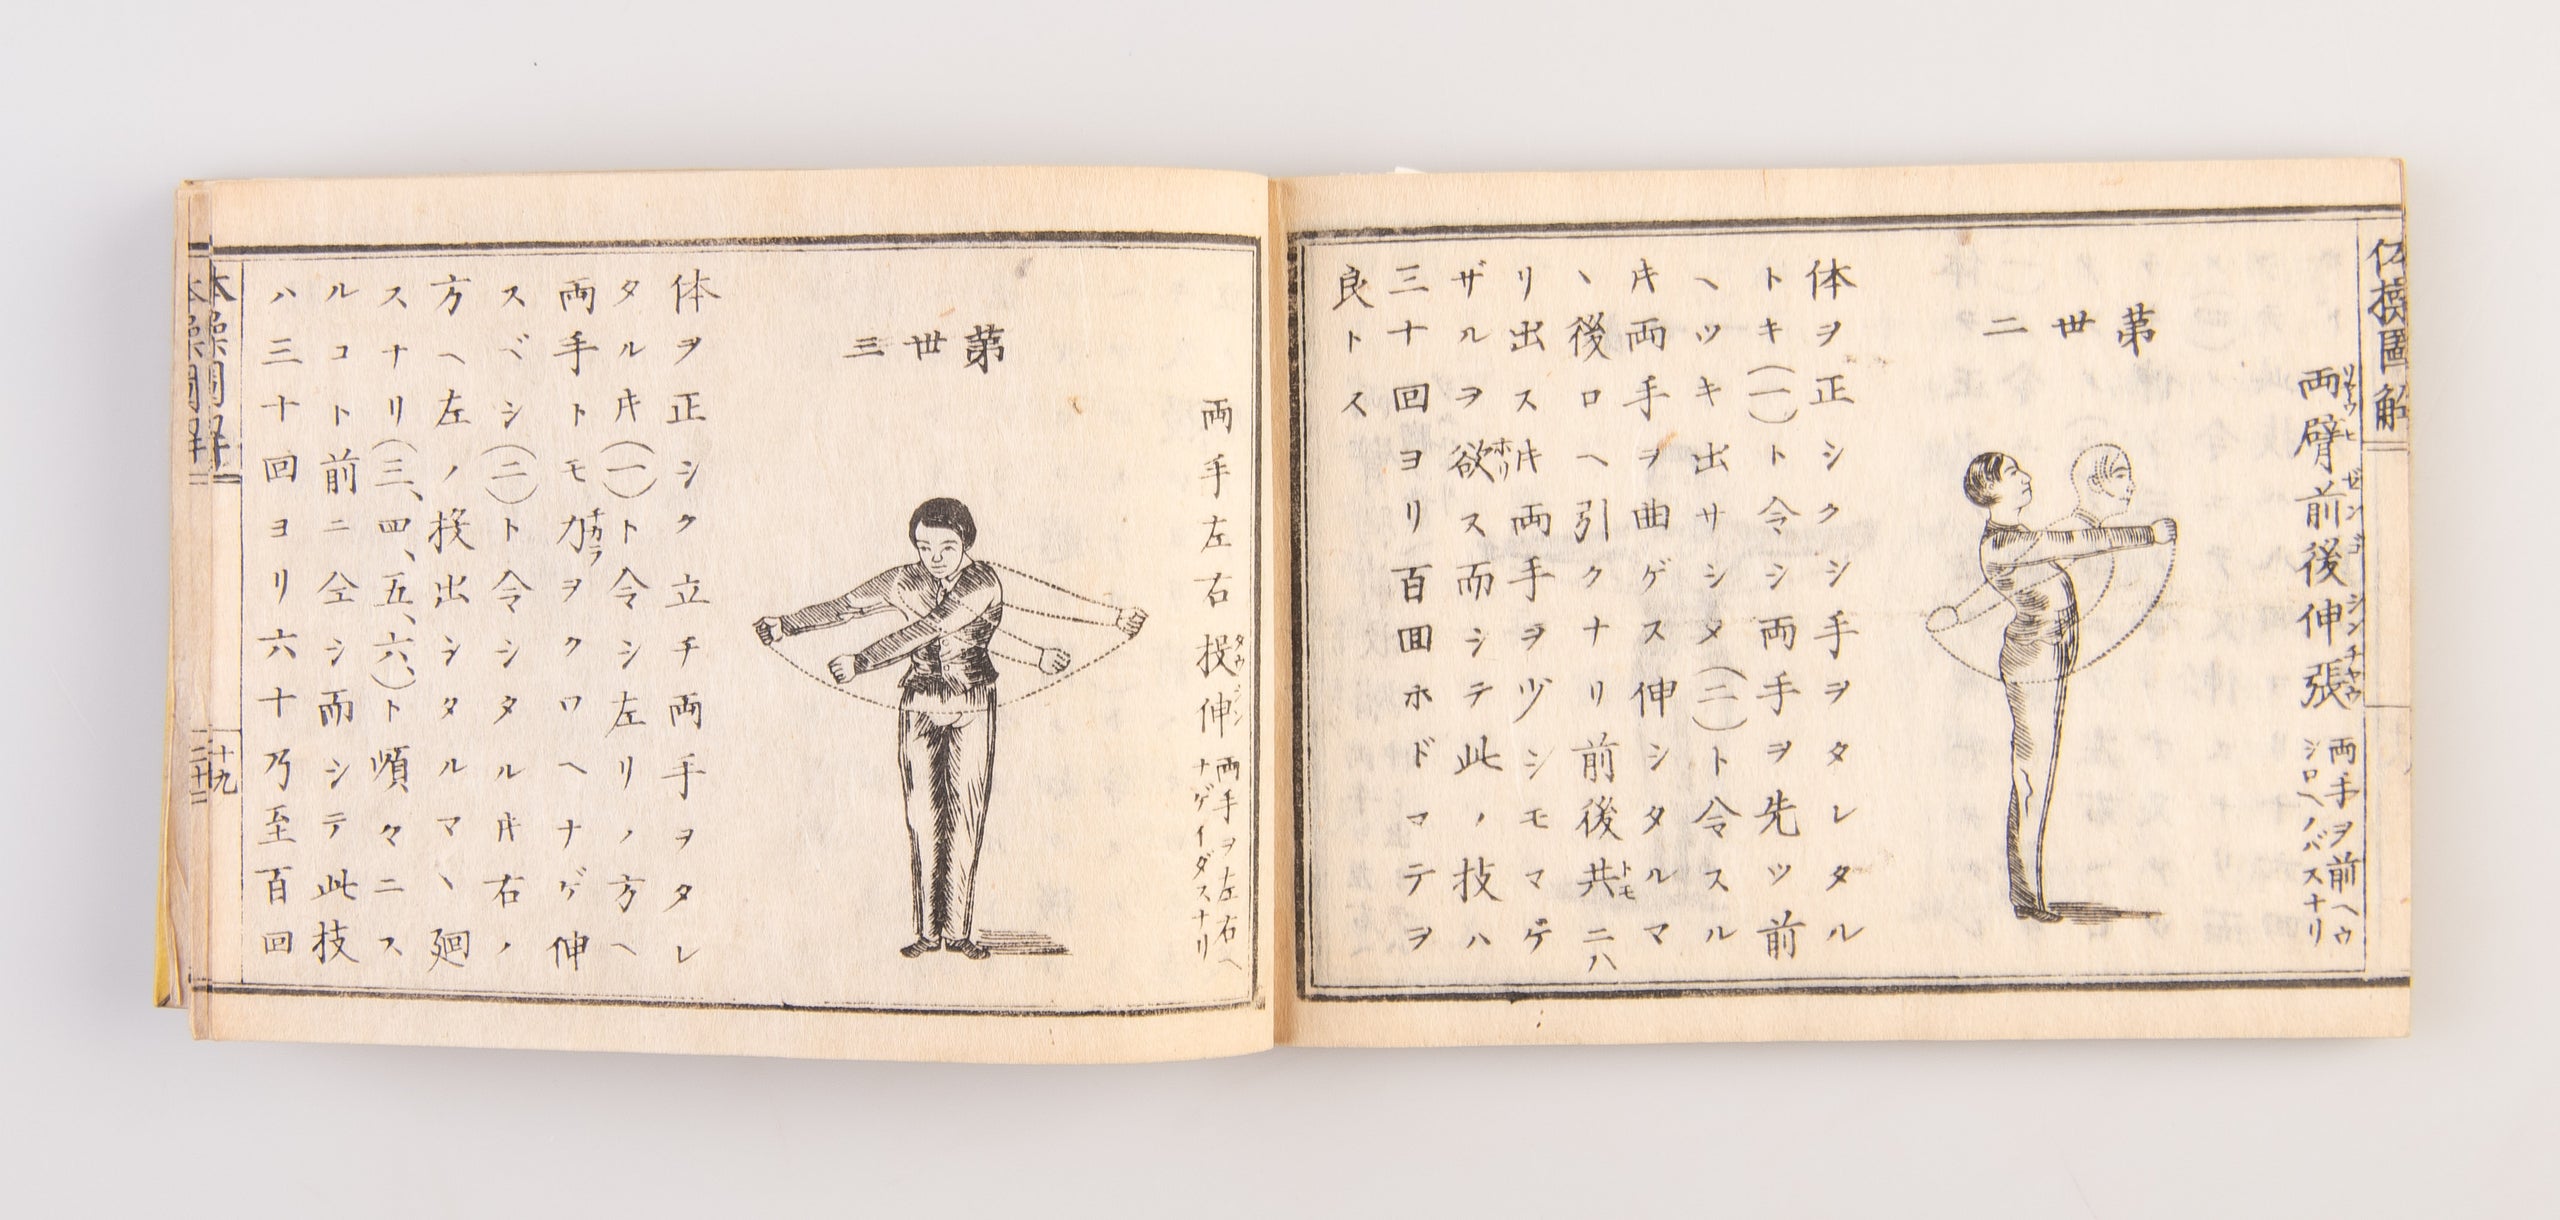 体操圖解
両臂前後伸張
リヤウヒゼンゴシンチヤウ
両手ヲ前ヘウ
シロヘノバスナリ
第丗二
体ヲ正シクシ手ヲタレタル
トキ(一)ト令シ両手ヲ先ツ前
ヘツキ出サシメ(二)ト令スル
𪜈両手ヲ曲ゲス伸シタルマ
ヽ後ロヘ引クナリ前後共ニハ
トモ
リ出ス𪜈両手ヲ少シモマゲ
ザルヲ欲ス而シテ此ノ技ハ
ホリ
三十回ヨリ百回ホドマテヲ
良トス
両手左右投伸
タウシン
両手ヲ左右ヘ
ナゲイダスナリ
第丗三
体ヲ正シク立チ両手ヲタレ
タル𪜈(一)ト令シ左リノ方ヘ
両手トモ力ヲクワヘナゲ伸
チカラ
スベシ(二)ト令シタル𪜈右ノ
方ヘ左ノ投出シタルマヽ廻
スナリ(三、四、五、六、)ト順々ニス
ルコト前ニ仝シ而シテ此技
ハ三十回ヨリ六十乃至百回
体操圖解
十九
二十